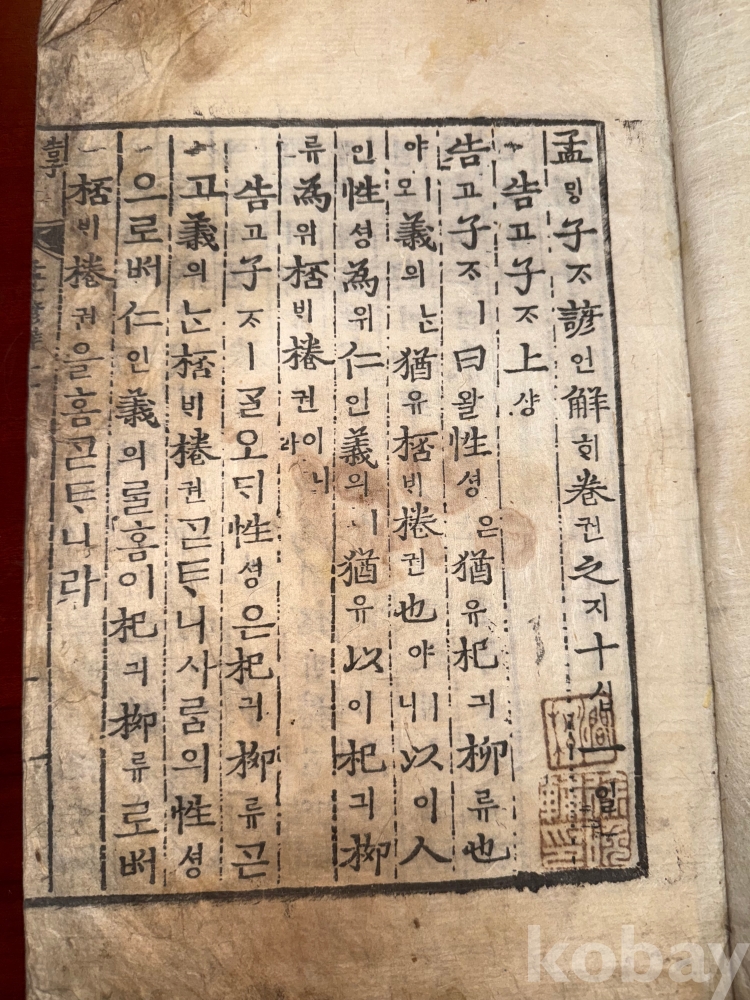 孟ᄆᆡᆼ子ᄌᆞ諺언解ᄒᆡ卷권之지十십一일
告고子ᄌᆞ上샹
告고子ᄌᆞㅣ曰왈性셩은猶유杞긔柳류也
야ㅣ오義의ᄂᆞᆫ猶유桮ᄇᆡ棬권也야ㅣ니以이人
인性셩為위仁인義의ㅣ猶유以이杞긔柳
류為위桮ᄇᆡ棬권이니라
告고子ᄌᆞㅣᄀᆞᆯ오ᄃᆡ性셩은杞긔柳류ᄀᆞᆮ
고義의ᄂᆞᆫ桮ᄇᆡ棬권ᄀᆞᆮᄐᆞ니사ᄅᆞᆷ의性셩
으로ᄡᅥ仁인義의ᄅᆞᆯ홈이杞긔柳류로ᄡᅥ
桮ᄇᆡ棬권을홈ᄀᆞᆮᄐᆞ니라
kobay